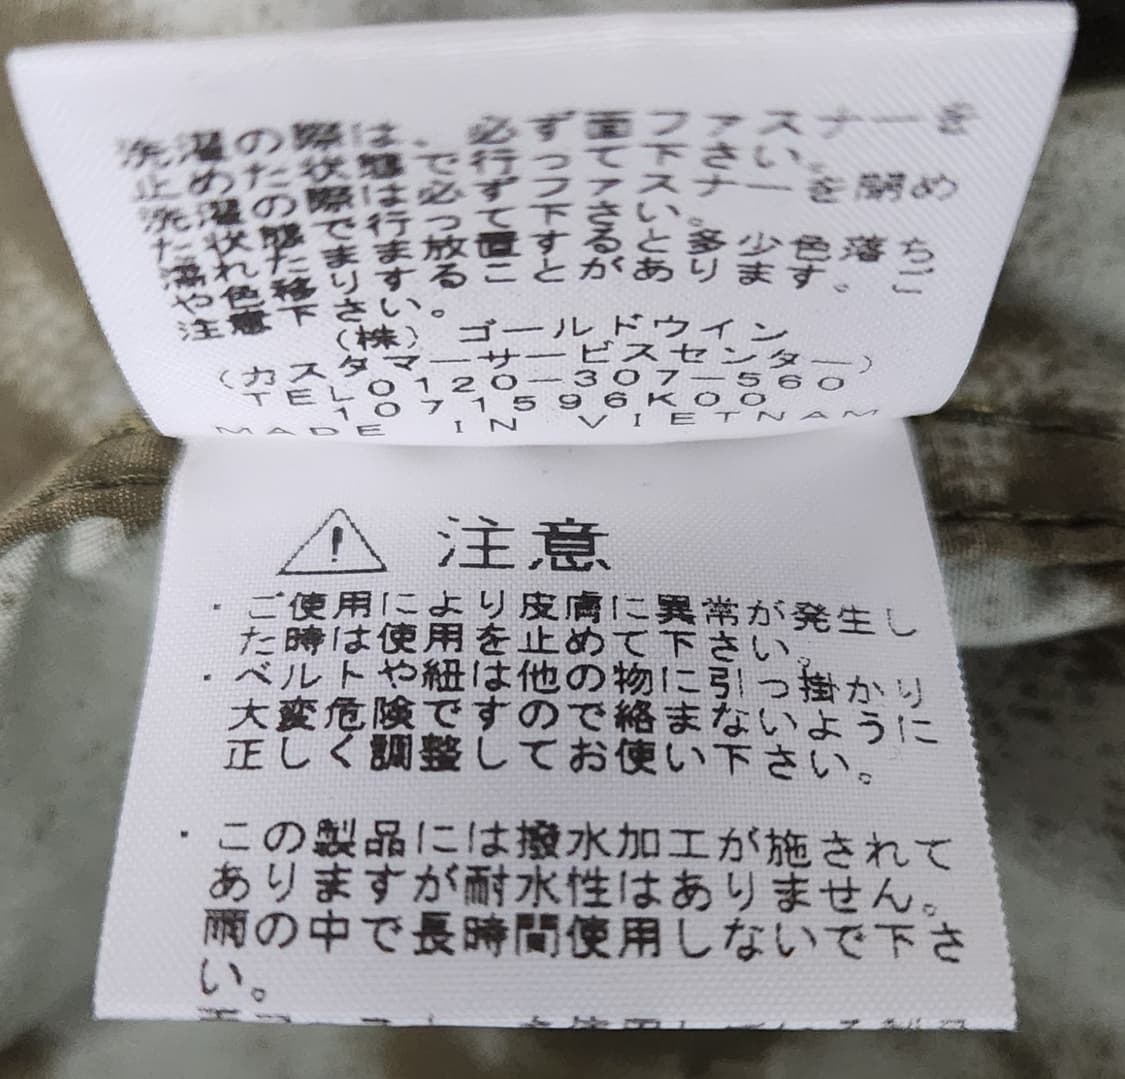 洗濯の際は、必ず面ファスナーを
止めた状態で行って下さい。
洗濯の際は必ずファスナーを閉め
た状態で行って下さい。
濡れたまま放置すると多少色落ち
や色移りすることがあります。ご
注意下さい。
(株) ゴールドウイン
(カスタマーサービスセンター)
TEL0120-307-560
1071596K00
MADE IN VIETNAM
注意
・ご使用により皮膚に異常が発生し
た時は使用を止めて下さい。
・ベルトや紐は他の物に引っ掛かり
大変危険ですので絡まないように
正しく調整してお使い下さい。
・この製品には撥水加工が施されて
ありますが耐水性はありません。
雨の中で長時間使用しないで下さ
い。